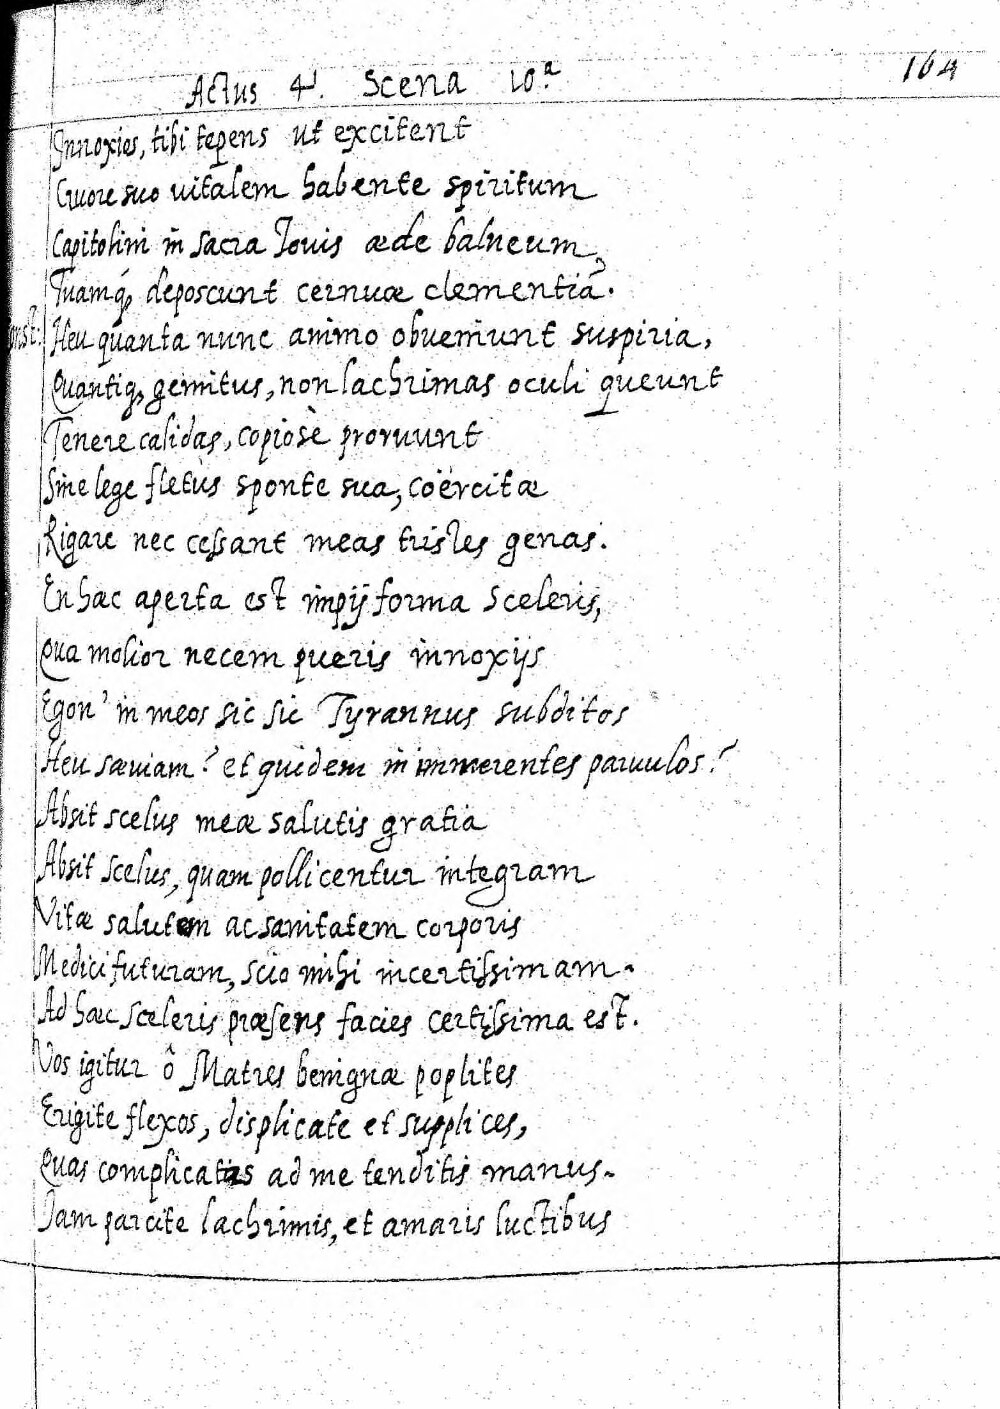 164
Actus 4. Scena 10.ª
Innoxies, tibi tepens ut excitent
Cruore suo uitalem habente spiritum
Capitolini in sacra Iouis æde balneum,
Tuamq́; deposcunt cernuæ clementiã.
onst: Heu quanta nunc animo obueniunt suspiria,
Quantiq; gemitus, non lachrimas oculi queunt
Tenere calidas, copiosè proruunt
Sine lege fletus sponte sua, coërcitæ
Rigare nec cessant meas tristes genas.
En hac aperta est impij forma sceleris,
Qua molior necem pueris innoxijs
Egon' in meos sic sic Tyrannus subditos
Heu sæuiam? et quidem in immerentes paruulos?
Absit scelus meæ salutis gratia
Absit scelus, quam pollicentur integram
Vitæ salutem ac sanitatem corporis
Medici futuram, scio mihi incertissimam.
Ad hæc sceleris præsens facies certissima est.
Vos igitur ô Matres benignæ poplites
Erigite flexos, displicate et supplices,
Quas complicatas ad me tenditis manus.
Iam parcite lachrimis, et amaris luctibus